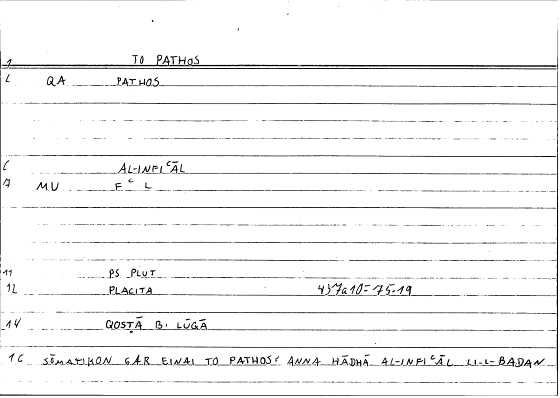 1 TO PATHOS
2 QA PATHOS
6 AL-INFIʿĀL
7 MU FʿL
11 PS PLUT
12 PLACITA 437a10=75.19
14 QOSṬĀ B. LŪGĀ
16 SŌMATIKON GAR EINAI TO PATHOS: ANNA HĀDHĀ AL-INFIʿĀL LI-L-BADAN